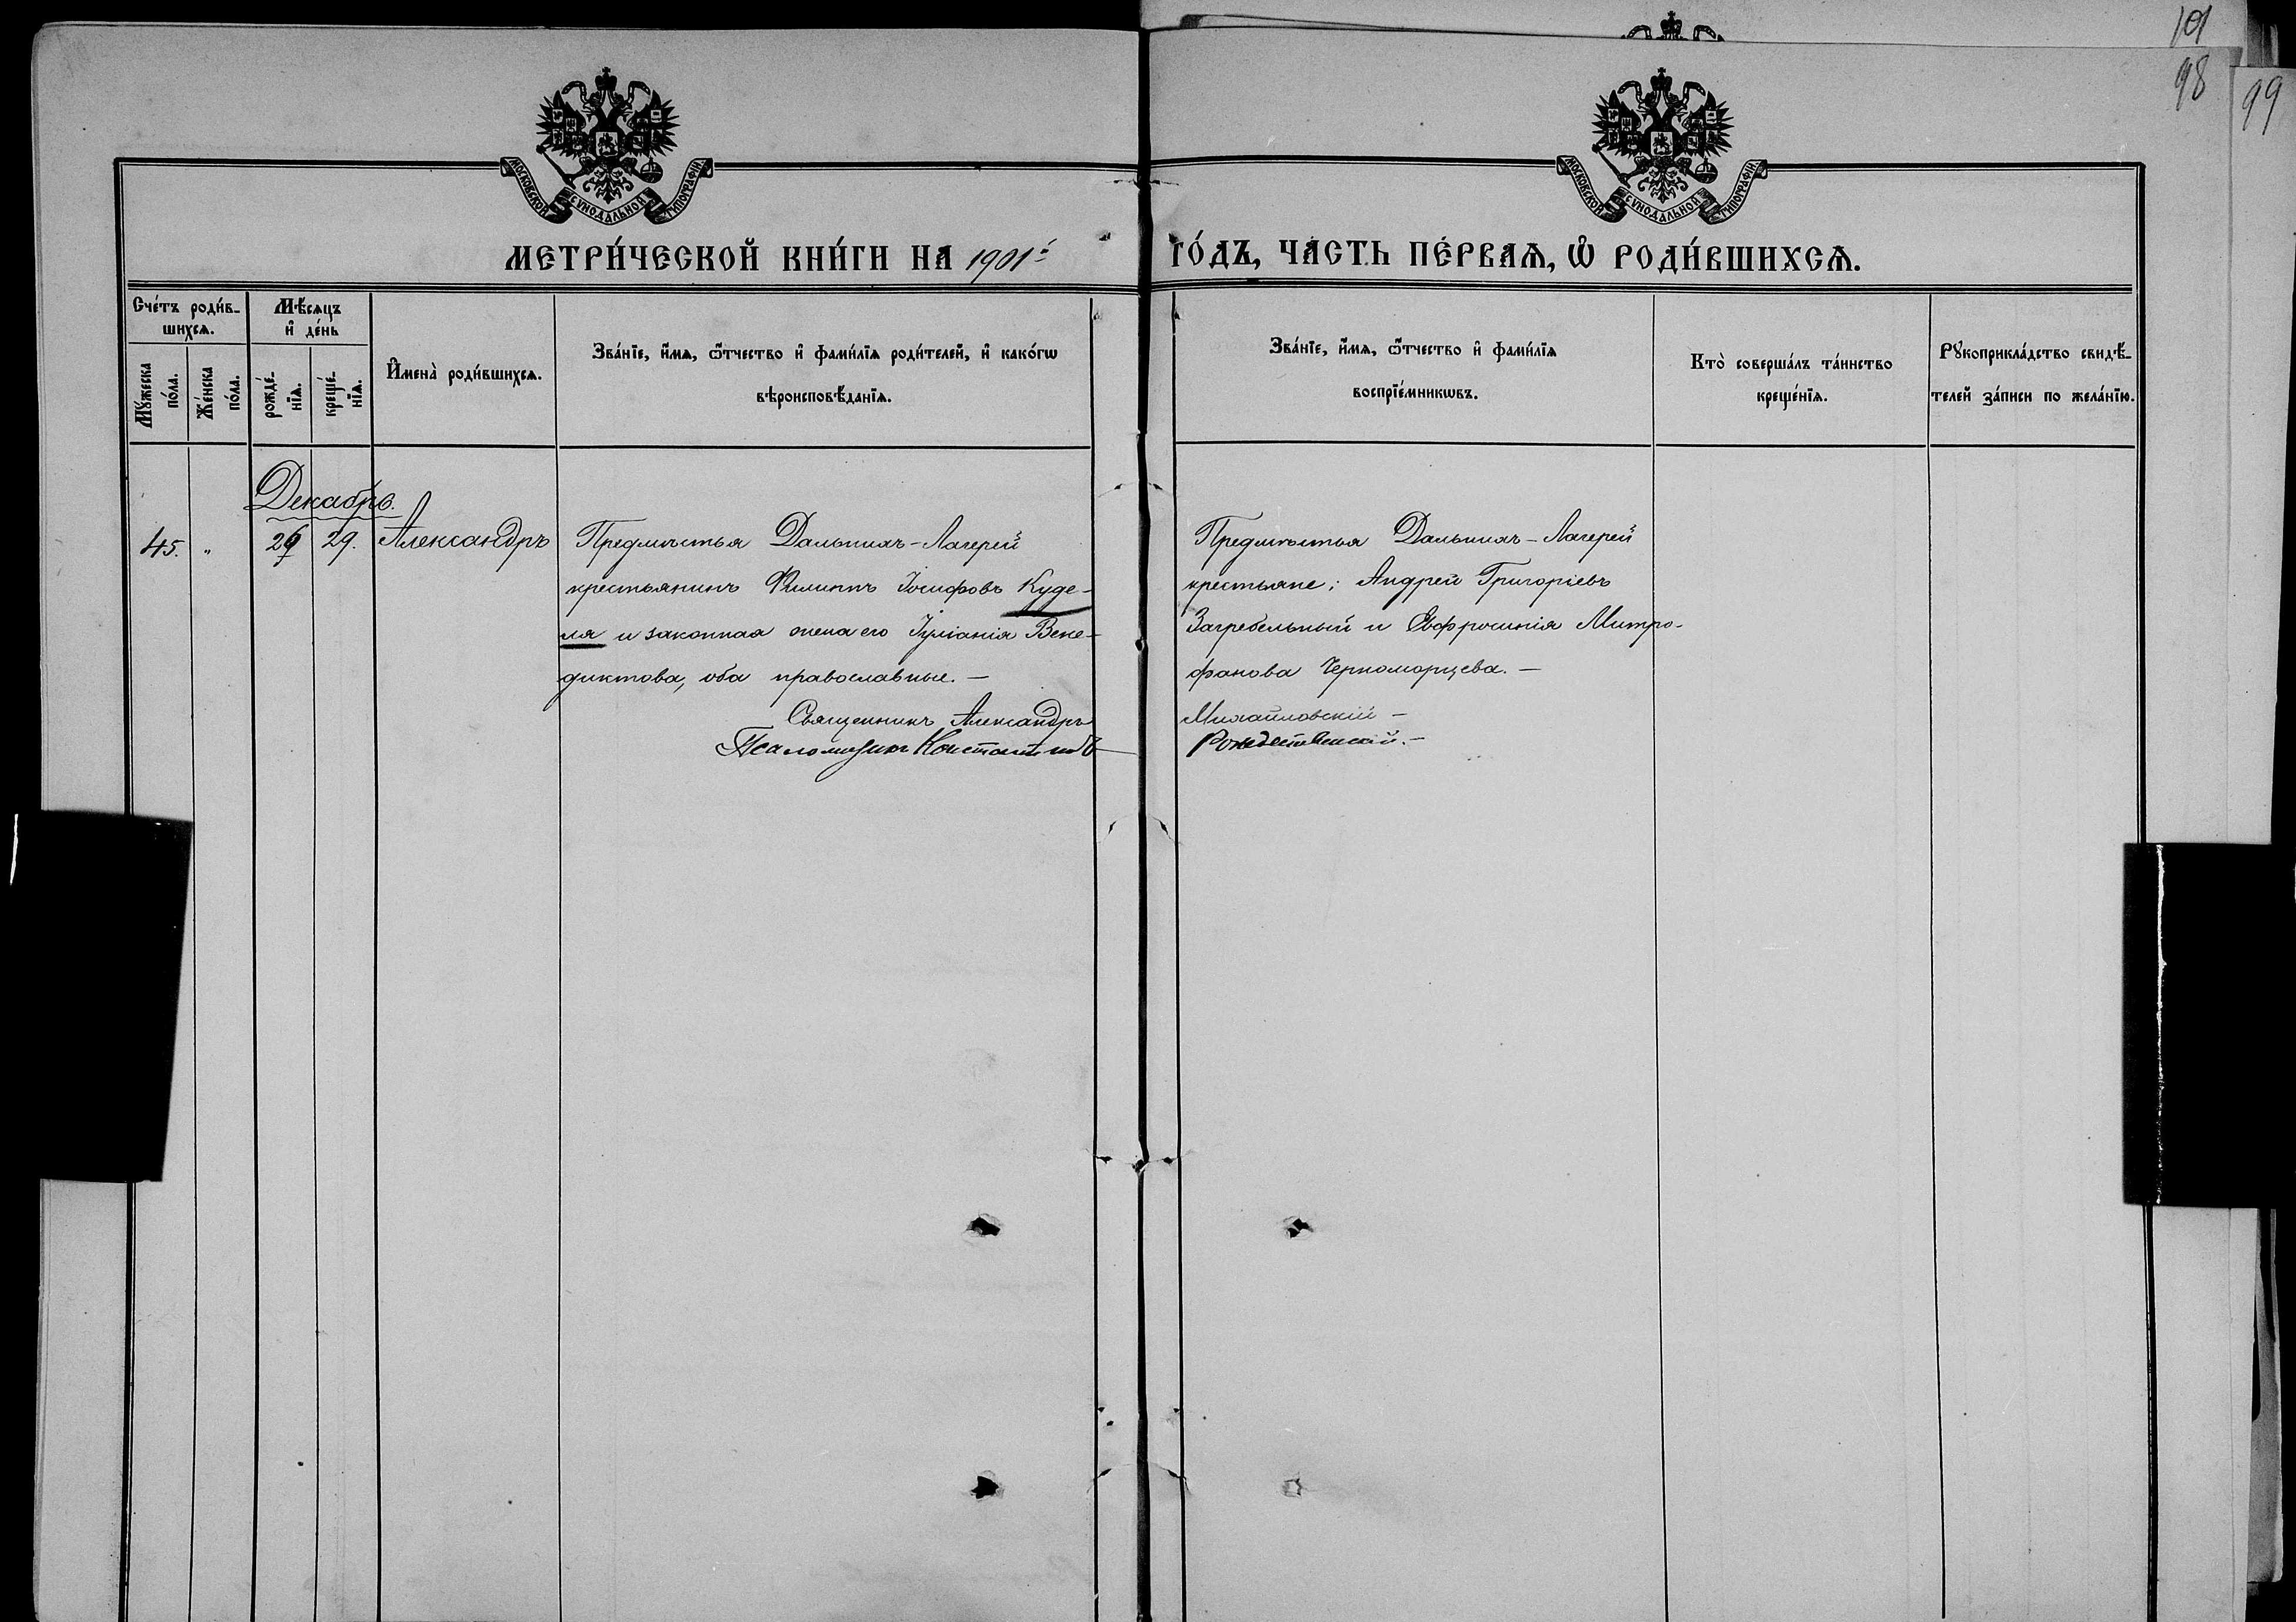 101
98
99
МОСКОВСКОЙ СѴНОДАЛЬНОЙ ТИПОГРАФІИ.
МОСКОВСКОЙ СѴНОДАЛЬНОЙ ТИПОГРАФІИ.
МЕТРИ́ЧЕСКОЙ КНИ́ГИ НА 1901й
ГО́ДЪ, ЧА́СТЬ ПЕ́РВАѦ, Ѡ҆ РОДИ́ВШИХСѦ.
Сче́тъ роди́в-
шихсѧ.
Мꙋ́жеска
по́ла.
Же́нска
по́ла.
Мѣ́сѧцъ
и҆ де́нь
рожде́-
нїѧ.
креще́-
нїѧ.
И҆мена̀ роди́вшихсѧ.
Зва́нїе, и҆́мѧ, ѻ҆́тчество и҆ фами́лїѧ роди́телей, и҆ како́гѡ
вѣроисповѣ́данїѧ.
Зва́нїе, и҆́мѧ, ѻ҆́тчество и҆ фами́лїѧ
воспрїе́мникѡвъ.
Кто̀ соверша́лъ та́инство
креще́нїѧ.
Рꙋкоприкла́дство свидѣ́-
телей за́писи по жела́нїю.
Декабрь.
45. " 26 29. Александръ
Предмѣстья Дальнихъ-Лагерей
крестьянинъ Филиппъ Іосифовъ Куде-
ля и законная жена его Іуліанія Вене-
диктова, оба православные. —
Священникъ Александръ
Псаломщикъ Константинъ
Предмѣстья Дальнихъ-Лагерей
крестьяне: Андрей Григоріевъ
Загребельный и Евфросинія Митро-
фанова Черноморцева. —
Михайловскій —
Рождественскій. —